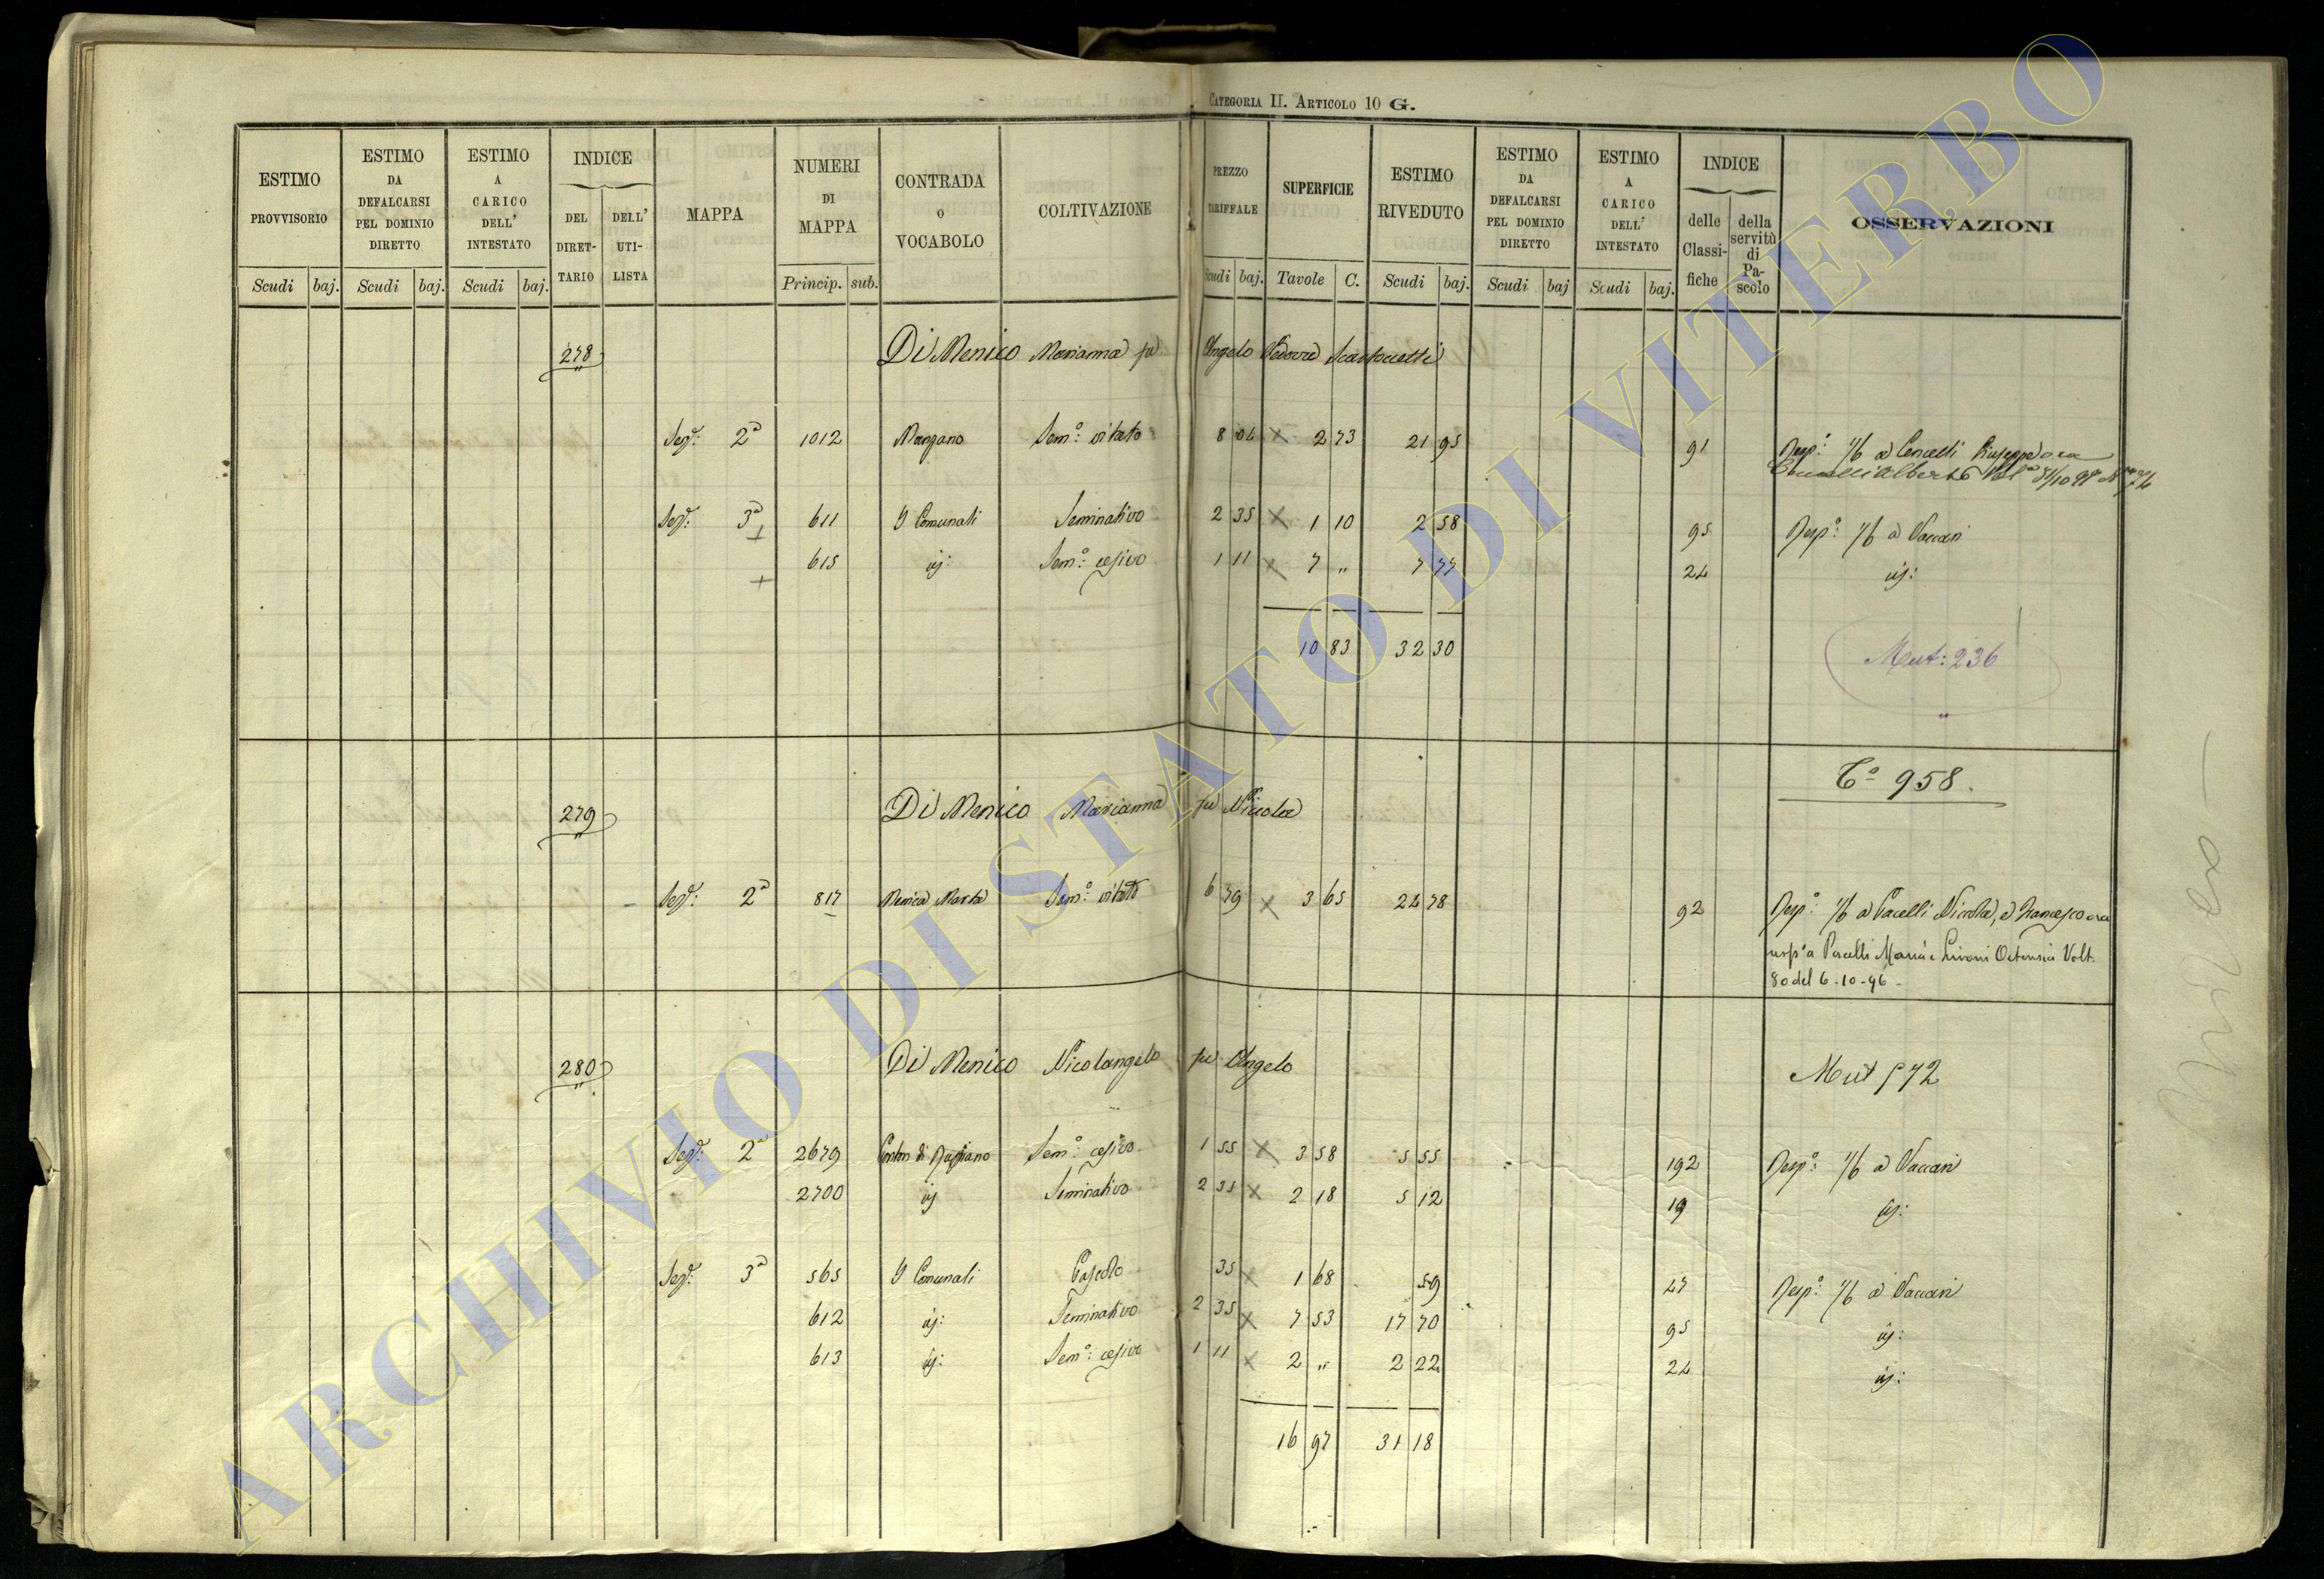 CATEGORIA II. ARTICOLO 10 G.
ESTIMO PROVVISORIO
ESTIMO DA DEFALCARSI PEL DOMINIO DIRETTO
ESTIMO A CARICO DELL' INTESTATO
INDICE
DEL DIRET-TARIO
DELL' UTI-LISTA
MAPPA
NUMERI DI MAPPA
CONTRADA O VOCABOLO
COLTIVAZIONE
PREZZO TARIFFALE
SUPERFICIE
ESTIMO RIVEDUTO
ESTIMO DA DEFALCARSI PEL DOMINIO DIRETTO
ESTIMO A CARICO DELL' INTESTATO
INDICE
delle Classi-fiche
della servitù di Pa-scolo
OSSERVAZIONI
Scudi baj. Scudi baj. Scudi baj. Princip. sub. Scudi baj. Tavole C. Scudi baj. Scudi baj Scudi baj.
278 Di Menico Marianna fu Angelo Vedova
Sez: 2a 1012 Manzano Sem.o vitato 8 04 2 73 21 95 91 Risp.o 1/6 a Cencelli Giuseppe ora
Cencelli Alberto
Sez: 3a 611 I Comunali Seminativo 2 35 1 10 2 58 95 Risp.o: 1/6 a Vaccari
615 id: Sem.o: cesivo 1 11 7 " 7 77 24 id:
10 83 32 30
Mut: 236
C.o 958.
279 Di Menico Marianna fu Niccola
Sez: 2a 817 Sem.o vitato 6 79 3 65 24 78 92 Risp.o 1/6 a Pacelli Niccola, e Francesco ora
risp.a Pacelli Maria e Ortensia Volt.
80 del 6-10-96-
280 Di Menico Nicolangelo fu Angelo
Mut 572
Sez: 2a 2679 Sem.o cesivo 1 55 3 58 5 55 192 Risp.o: 1/6 a Vaccari
2700 id Seminativo 2 35 2 18 5 12 19 id:
Sez: 3a 565 I Comunali Pascolo 35 1 68 59 27 Risp.o: 1/6 a Vaccari
612 id: Seminativo 2 35 7 53 17 70 95 id:
613 id: Sem.o: cesivo 1 11 2 " 2 22 24 id:
16 97 31 18
ARCHIVIO DI STATO DI VITERBO